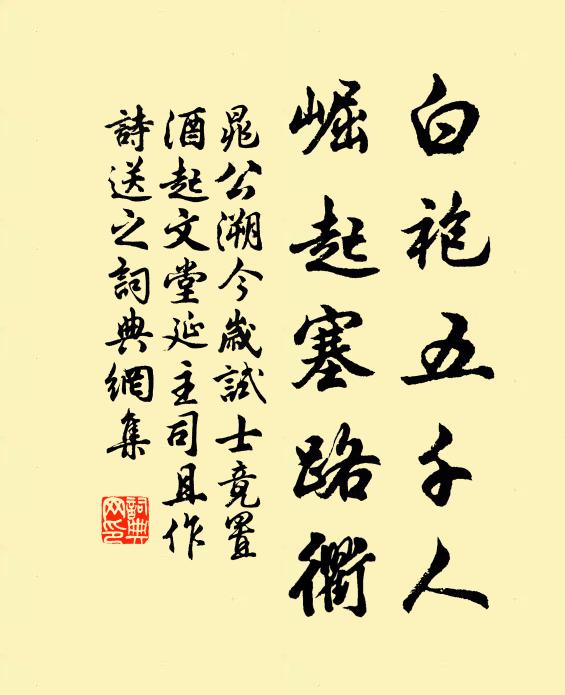 白袍五千人
崛起塞路衢
晁公溯今歲試士竟置
酒起文堂延主司且作
詩送之詞典網集
詞典
网印